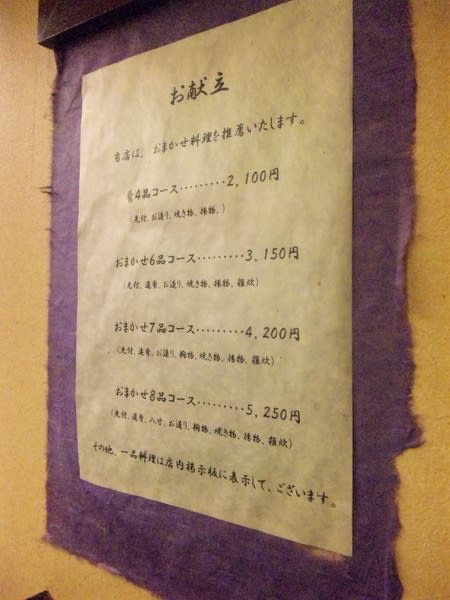 お献立
当店は、おまかせ料理を推薦いたします。
肴4品コース・・・・・・・・・2,100円
(先付、お造り、焼き物、揚物、)
おまかせ6品コース・・・・・・・・・3,150円
(先付、進肴、お造り、焼き物、揚物、雑炊)
おまかせ7品コース・・・・・・・・・4,200円
(先付、進肴、お造り、椀物、焼き物、揚物、雑炊)
おまかせ8品コース・・・・・・・・・5,250円
(先付、進肴、八寸、お造り、椀物、焼き物、揚物、雑炊)
その他、一品料理は店内掲示板に表示して、ございます。